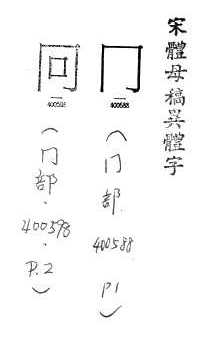 宋體母稿異體字
冂
400588
(冂部 400588 P1)
冋
400598
(冂部.400598.P.2)